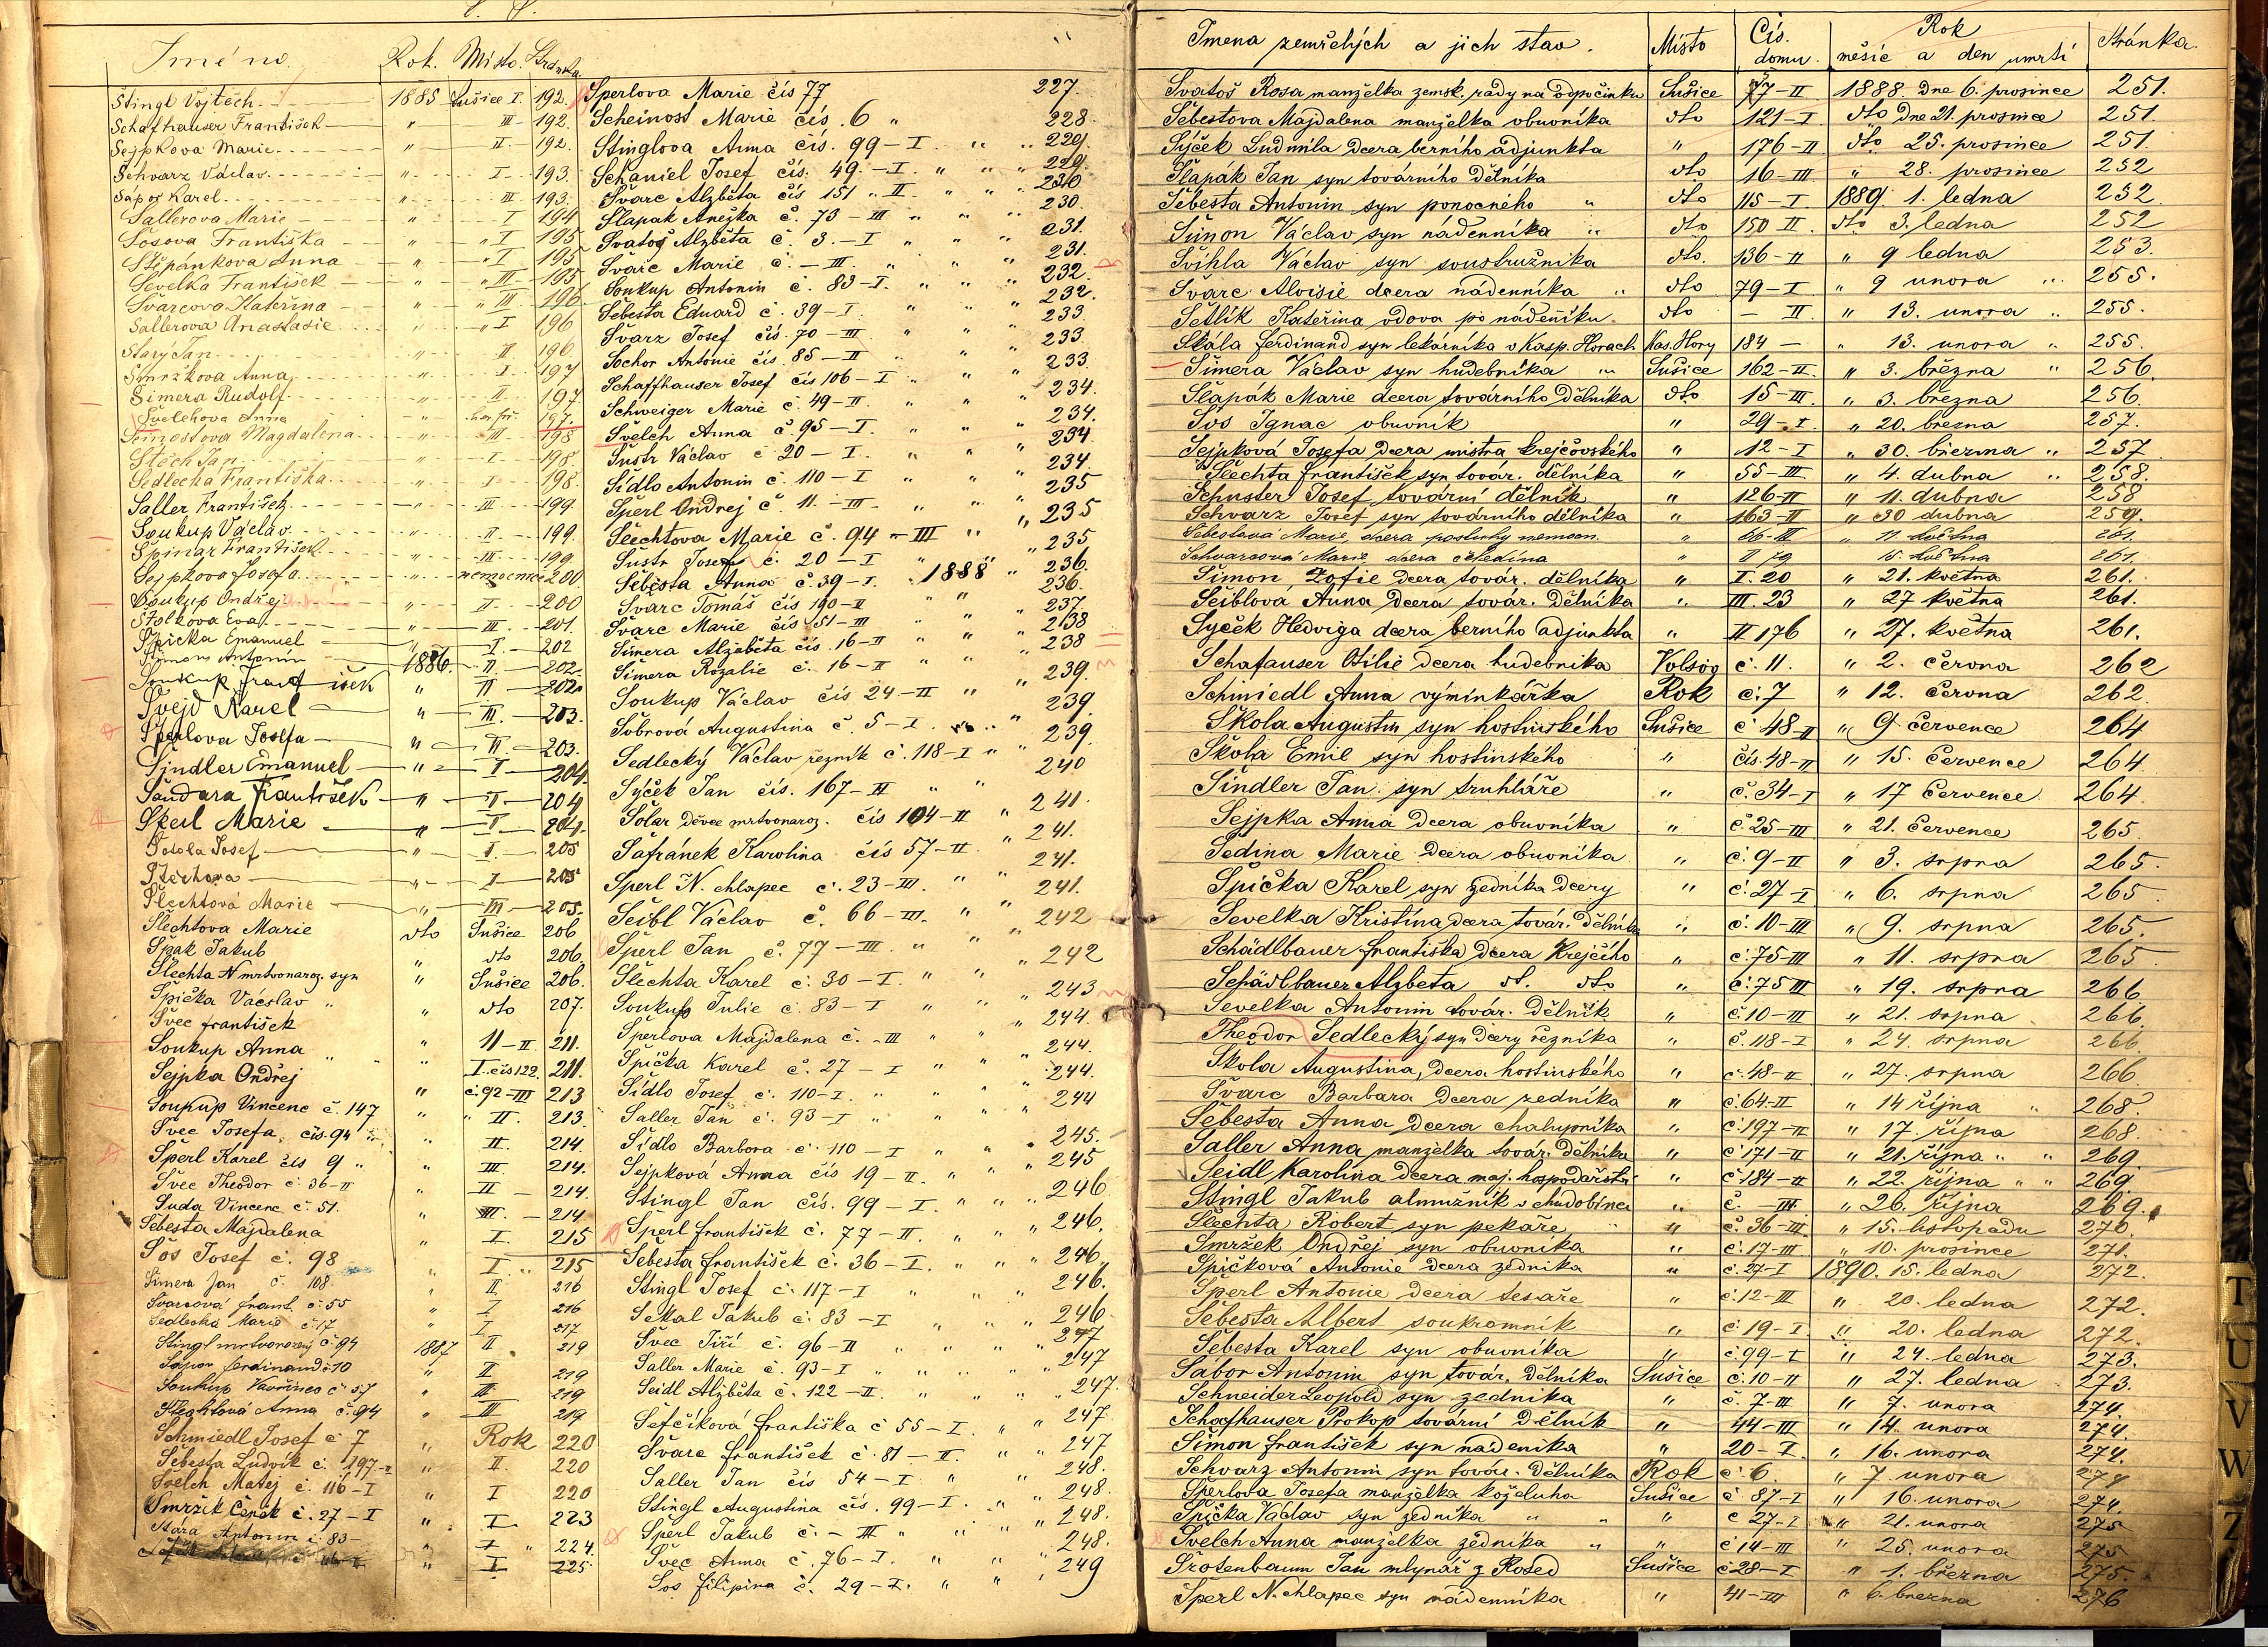 S. S.
Jméno. Rok. Místo. Stránka
Štingl Vojtěch 1885 Sušice I. 192.
Schafhauser František " III 192.
Sejpkova Marie " II 192.
Schvarz Václav " I 193.
Šápor Karel " III 193.
Sallerova Marie " I 194
Šosova Františka " I 195
Štěpánkova Anna " I 195
Ševelka František " III 195
Švarcova Kateřina " III 196
Sallerova Anastasie " I 196
Starý Jan " II 196
Smržkova Anna " I 197
Šimera Rudolf " II 197
Švelchova Anna " 197.
Magdalena " III 198
Štěch Jan " I 198.
Sedlecka Františka " I 198.
Saller František " III 199.
Soukup Václav " II 199.
Špinar František " III 199
Sejpkova Josefa " nemocnice 200
Soukup Ondřej " II 200
Štolkova Eva " III 201.
Špička Emanuel " I 202
Antonín 1886. II. 202
Soukup František " II 202
Švejd Karel " III. 203.
Šperlova Josefa " II. 203.
Šindler Emanuel " I 204.
Šandara František " I 204
Skeil Marie " I 204.
Sobola Josef " I. 205
" I 205
Šlechtová Marie " III 205.
Šlechtova Marie dto Sušice 206
Špak Jakub " dto 206.
Šlechta N mrtvonaroz. syn " Sušice 206.
Špička Václav " " dto 207.
Švec František
Soukup Anna " " 11–II. 211.
Sejpka Ondřej I. čís 122. 211.
Soukup Vincenc č. 147 " č. 92–III 213
Švec Josefa, čís. 94 " " II. 213.
Šperl Karel čís 9 " " II. 214.
Švec Theodor č. 36–II " III 214.
Suda Vincenc č. 51. " II 214.
Šebesta Majdalena " III 214
Šos Josef č. 98 " I 215
Šimera Jan č. 108 " I. 215
Švarcová Frant. č. 55 " II 216
Sedlecká Marie č. 17 " I 216
Stingl mrtvorozený č. 94 " I 217
Šapor Ferdinand č. 10 1887 II 219
Soukup Vavřinec č. 57 " II 219
Šlechtová Anna č. 94 " III 219
Schmiedl Josef č. 7 " III 219
Šebesta Ludvík č. 197–II " Rok 220
Švelch Matěj č. 116–I " II. 220
Smržík Čeněk č. 27–I " I 220
Stára Antonín č. 83– " I 223
" I " 224.
" I 225.
Šperlova Marie čís 77 227.
Scheinost Marie čís. 6 " 228.
Štinglova Anna čís. 99–I. " " 229.
Schaniel Josef čís. 49.–I. " " 229.
Švarc Alžběta čís 151 " II " " 230
Šlapak Anežka č. 75–III " " 230.
Svatoš Alžběta č. 3.–I " " 231.
Švarc Marie č.–III " " 231.
Soukup Antonin č. 83–I. " " 232.
Šebesta Eduard č. 39–I. " 232.
Švarz Josef čís. 70–III " " 233.
Sochor Antonie čís. 85–II " " 233
Schaffhauser Josef čís 106–I " " 233.
Schweiger Marie č. 49–II. " " 234.
Švelch Anna č. 95–I. " " 234.
Šustr Václav č 20–I. " " 234
Šidlo Antonin č. 110–I " " 234.
Šperl Ondrej č. 11.–III " " 235
Šlechtova Marie č. 94–III " 235
Šustr Josef č. 20–I " 235
Šebesta Anna č. 39–I. 1888 " 236.
Švarc Tomáš čís 190–II " " 236.
Švarc Marie čís 51–III " " 237.
Šimera Alžběta čís. 16–II " " 238
Šimera Rozalie č. 16–II " " 238
Soukup Václav čís 24–II " " 239.
Sobrová Augustina č. 5–I " 239.
Sedlecký Václav řezník č. 118–I " 239.
Sýček Jan čís. 167–II " " 240
Šolar děvče mrtvonaroz. čís 104–II " 241.
Šafránek Karolina čís 57–II " 241.
Šperl N. chlapec č. 23–III. " " 241.
Seibl Václav č. 66–III. " " 241.
Šperl Jan č. 77–III. " " 242
Šlechta Karel č. 30–I. " " 242
Soukup Julie č. 83–I " " 243
Šperlova Majdalena č. –III " " 244.
Špička Karel č. 27–I " " 244.
Šidlo Josef č. 110–I. " " 244.
Saller Jan č. 93–I " " 244
Šídlo Barbora č. 110–I " " 245.
Sejpková Anna čís 19–II. " " 245
Stingl Jan čís. 99–I. " " 246
Šperl František č. 77–II. " " 246.
Šebesta František č. 36–I. " " 246.
Stingl Josef č. 117–I " " 246.
Sekal Jakub č. 83–I " " 246
Švec Jiří č. 96–II " " 247
Saller Marie č. 93–I " " 247
Seidl Alžběta č. 122–II. " " 247.
Šefčíková Františka č 55–I. " 247
Švarc František č. 81–II. " " 247
Saller Jan čís 54–I " " 248.
Stingl Augustina čís. 99–I. " " 248.
Šperl Jakub č. – III " " 248.
Švec Anna č. 76–I. " " 248.
Šos Filipina č. 29–I. " " 249
Jmena zemřelých a jich stav. Místo Čís. domu Rok měsíc a den umrtí Stránka.
Svatoš Rosa manželka zemsk. rady na odpočinku Sušice 77–II 1888. dne 6. prosince 251.
Šebestova Majdalena manželka obuvníka dto 121–I dto dne 21. prosince 251.
Sýček Ludmila dcera berního adjunkta " 176–II dto 25. prosince 251.
Šlapák Jan syn továrního dělníka dto 16–III " 28. prosince 252
Šebesta Antonin syn ponocného " dto 115–I 1889. 1. ledna 252.
Šimon Václav syn nádenníka " dto 150 II. dto 3. ledna 252
Švihla Václav syn soustružníka dto. 136–II " 9 ledna 253.
Švarc Aloisie dcera nádenníka " dto 79–I " 9 unora " 255.
Šetlík Kateřina vdova po nádeníku. dto – II. " 13. unora " 255.
Skála Ferdinand syn lekárníka v Kasp. Horach Kas. Hory 184 – " 13. unora " 255.
Šimera Václav syn hudebníka " Sušice 162–II. " 3. března " 256.
Šlapák Marie dcera továrního dělníka dto 15–III. " 3. března 256.
Šos Ignac obuvník " 29–I " 20. března 257.
Sejpková Josefa dcera mistra krejčovského " 12–I " 30. března " 257
Šlechta František syn továr. dělníka " 55–III " 4. dubna " 258.
Schuster Josef tovární dělník " 126–II " 11. dubna 258
Schvarz Josef syn továrního dělníka " 163–II " 30 dubna 259.
Šebestova Marie, dcera posluhy nemocn. " 66–III " 11. května 261.
Schvarcová Marie dcera čeledína " II 79 15. května 261.
Šimon, Žofie dcera továr. dělníka " I. 20 " 21. května 261.
Seiblová Anna dcera továr. dělníka " III. 23 " 27 května 261.
Syček Hedviga dcera berního adjunkta " II 176 " 27. května 261.
Schafauser Otilie dcera hudebnika Volšov č. 11. " 2. června 262
Schmiedl Anna výminkářka Rok č. 7 " 12. června 262
Škola Augustin syn hostinského Sušice č 48–II " 9 července 264
Škola Emil syn hostinského " čís. 48–II " 15. července 264
Šindler Jan syn truhláře " č. 34–I " 17 července 264
Sejpka Anna dcera obuvníka " č 25–III " 21. července 265
Sedina Marie dcera obuvníka " č. 9–II " 3. srpna 265.
Špička Karel syn zedníka dcery " č. 27–I " 6. srpna 265
Ševelka Kristina dcera továr. dělníka " č. 10–III " 9. srpna 265.
Schädlbauer Františka dcera krejčího " č. 75–III " 11. srpna 265
Schädlbauer Alzbeta dt. dto " č. 75 III " 19. srpna 266
Ševelka Antonin továr. dělník " č. 10–III " 21. srpna 266.
Theodor Sedlecký syn dcery řezníka " č. 118–I " 24. srpna 266
Škola Augustina, dcera hostinského " č. 48–II " 27. srpna 266
Švarc Barbara dcera zedníka " č 64–II " 14 října " 268.
Šebesta Anna dcera chalupníka " č. 197–II " 17. října 268.
Saller Anna manželka továr. dělníka " č 171–II " 21. října " " 269
Seidl Karolina dcera maj. hospodářství " č 184–II " 22. října " " 269
Stingl Jakub almužník v chudobinci " č. – III. " 26. října 269.
Šlechta Robert syn pekaře " č. 36–III " 15. listopadu 270.
Smržek Ondřej syn obuvníka " č. 17–III " 10. prosince 271.
Špičková Antonie dcera zedníka " č. 27–I 1890. 15. ledna 272.
Šperl Antonie dcera tesaře " č. 12–III " 20. ledna 272.
Šebesta Albert soukromník " č 19–I " 20. ledna 272.
Šebesta Karel syn obuvníka " č. 99–I " 24. ledna 273.
Šabor Antonin syn továr. dělníka Sušice č. 10–II " 27. ledna 273.
Schneider Leopold syn zedníka " č. 7–III " 7. unora 274.
Schafhauser Prokop tovární dělník " 44–III " 14. unora 274.
Šimon František syn nádenika " 20–I. " 16. unora 274.
Schvarz Antonin syn továr. dělníka Rok č. 6. " 7. unora 274
Šperlova Josefa manželka koželuha Sušice č. 87–I " 16. unora 274.
Špička Václav syn zedníka " " " č 27–I " 21. unora 275
Švelch Anna manželka zedníka " " č 14–III " 25. unora 275
Šrotenbaum Jan mlynář z Rosed Sušice č 28–I " 1. března 275.
Šperl N. chlapec syn nádenníka " 41–III " 6. března 276
T
U
V
W
Z